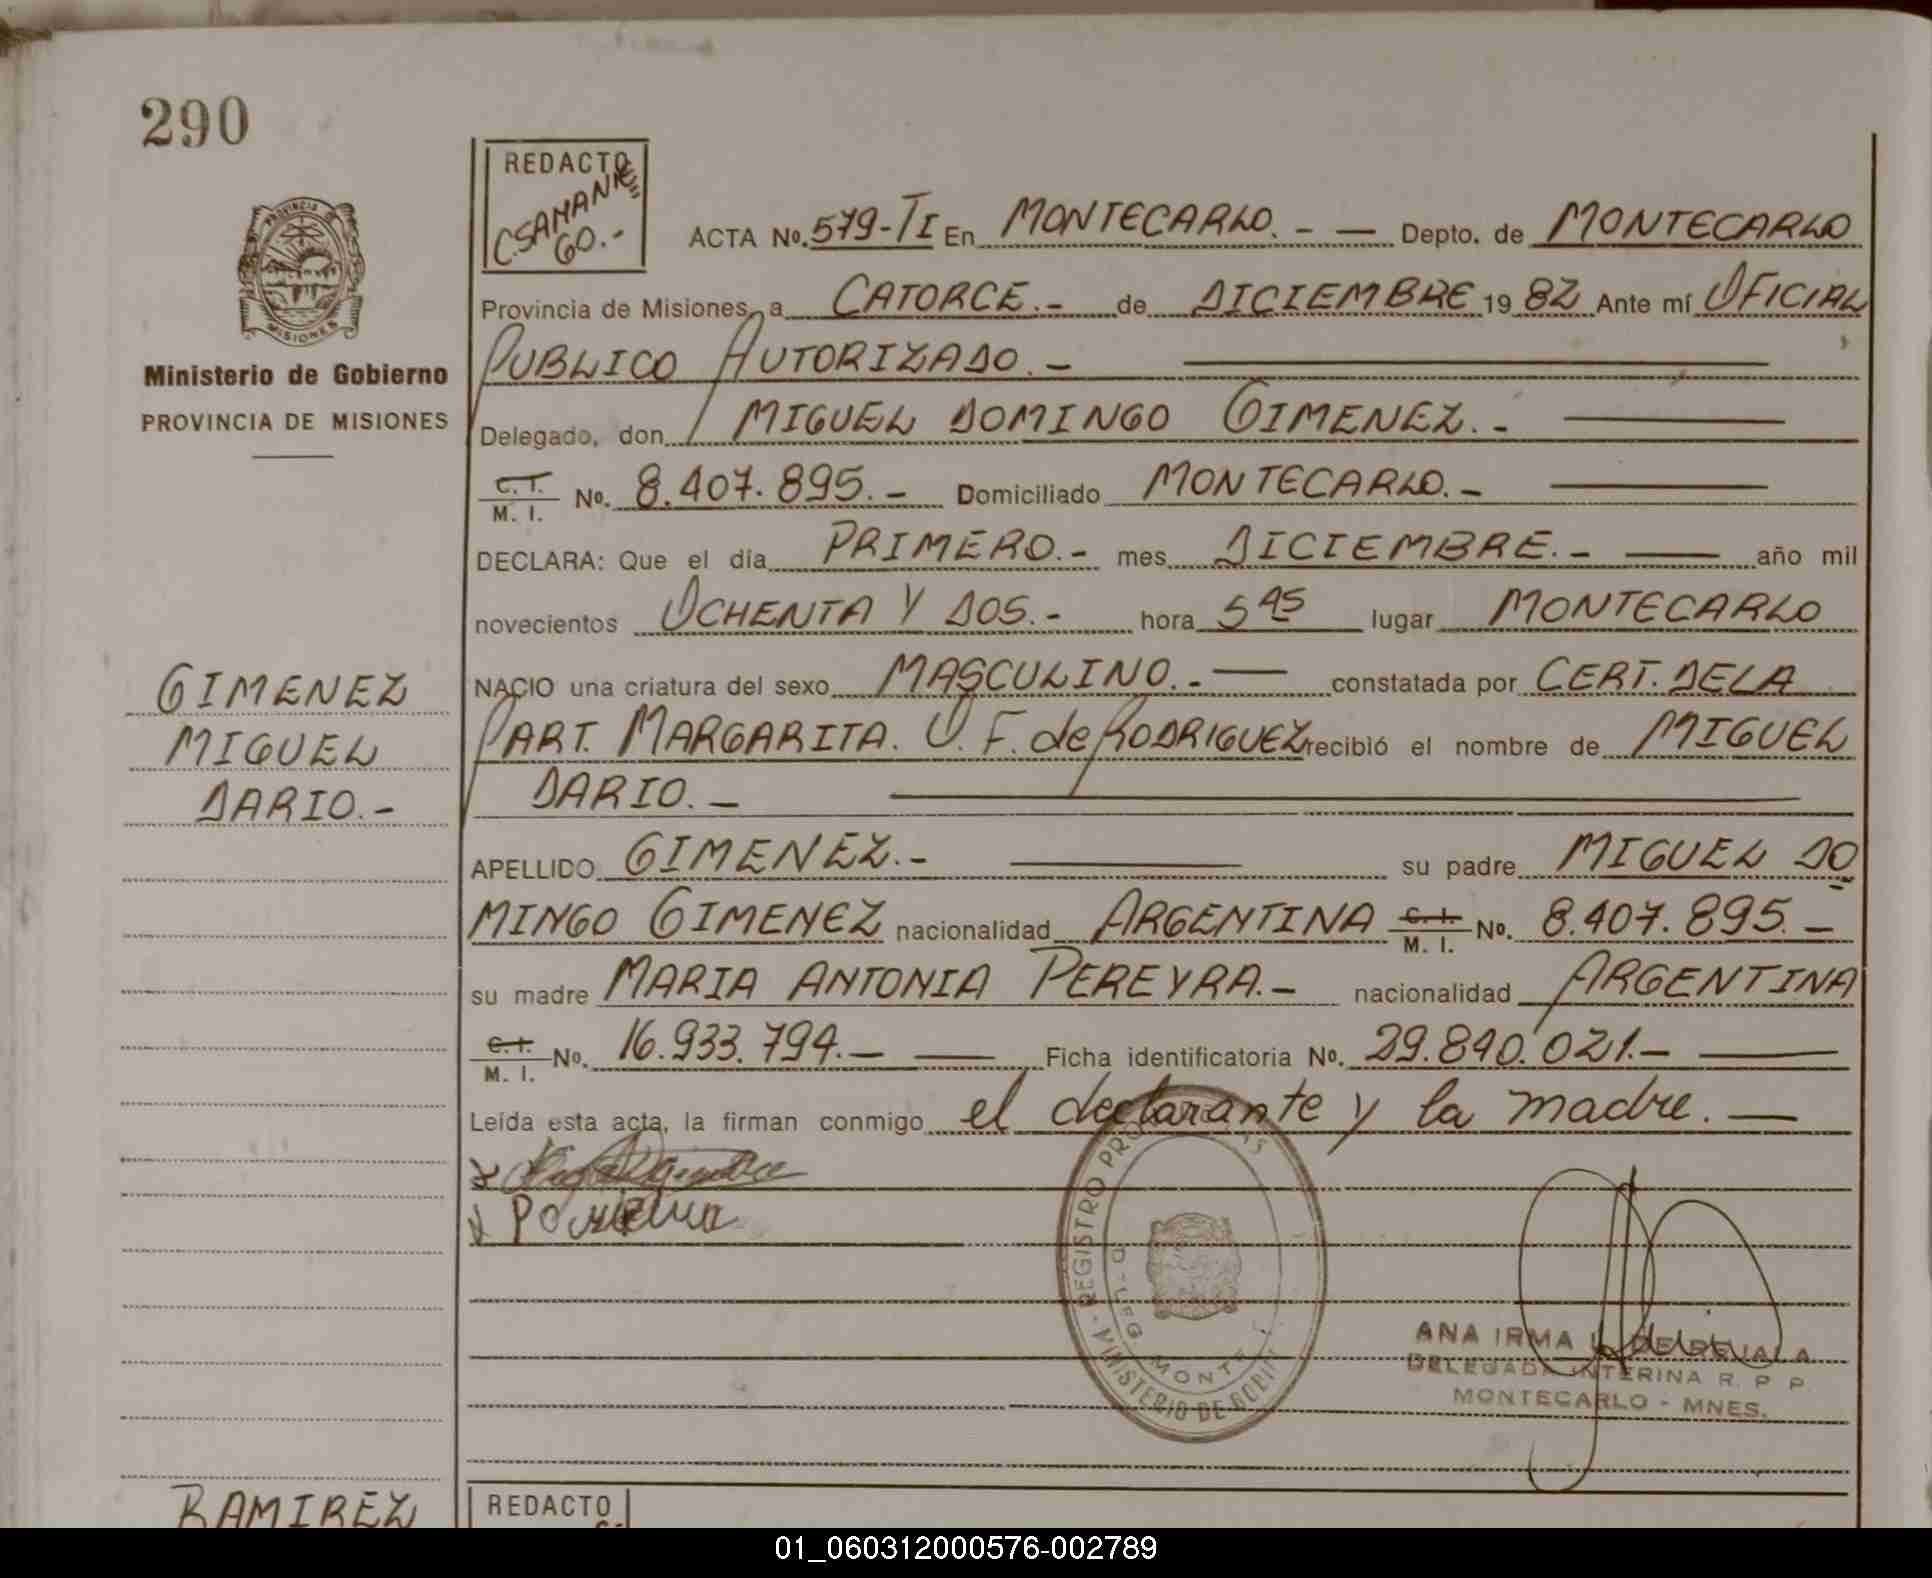 290
REDACTO
C. SAMANIE
GO.-
ACTA No. 579-TI En MONTECARLO. - — Depto. de MONTECARLO
PROVINCIA DE
MISIONES
Provincia de Misiones, a CATORCE.- de DICIEMBRE 1982 Ante mí OFICIAL
Ministerio de Gobierno
PROVINCIA DE MISIONES
PUBLICO AUTORIZADO.-
Delegado, don MIGUEL DOMINGO GIMENEZ.-
C. I. / M. I. No. 8.407.895.- Domiciliado MONTECARLO.-
DECLARA: Que el día PRIMERO.- mes DICIEMBRE.- — año mil
novecientos OCHENTA Y DOS.- hora 5 45 lugar MONTECARLO
GIMENEZ
MIGUEL
DARIO.-
NACIO una criatura del sexo MASCULINO.- — constatada por CERT. DE LA
PART. MARGARITA. O. F. de RODRIGUEZ recibió el nombre de MIGUEL
DARIO.-
APELLIDO GIMENEZ.- — su padre MIGUEL DO
MINGO GIMENEZ nacionalidad ARGENTINA C. I. / M. I. No. 8.407.895.-
su madre MARIA ANTONIA PEREYRA.- nacionalidad ARGENTINA
C. I. / M. I. No. 16.933.794.- — Ficha identificatoria No. 29.840.021.- —
Leída esta acta, la firman conmigo el declarante y la madre. —
REGISTRO PROVINCIAL
MINISTERIO DE GOBIERNO
DELEG MONTE
ANA IRMA
DELEGADA INTERINA R. P. P.
MONTECARLO - MNES.
RAMIREZ
REDACTO
01_060312000576-002789